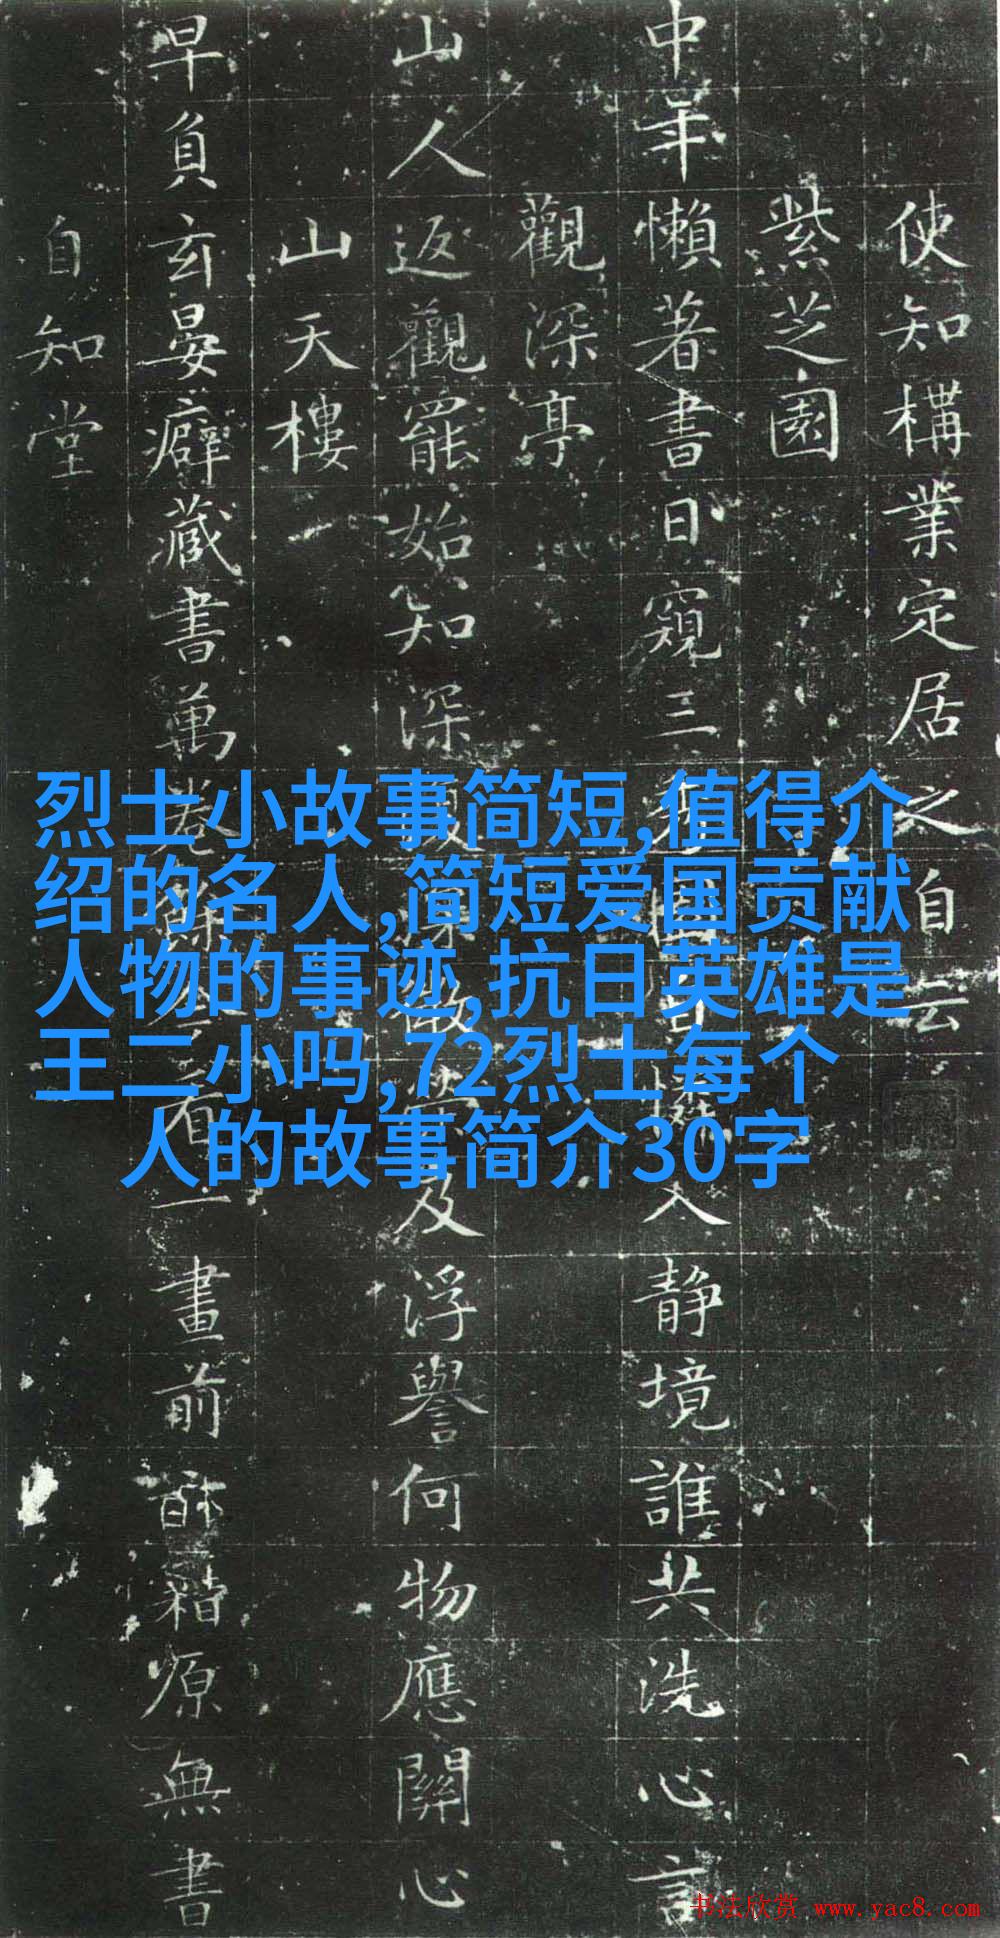 使知構業定居之自云
紫芝園
中年懶著書日窺三入靜境誰共洗心言
觀深亭
山人返觀罷始知深及浮譽何物應關心
山天樓
早負玄晏癖藏書萬卷一畫前籍原無書
自知堂
烈士小故事简短,值得介
绍的名人,简短爱国贡献
人物的事迹,抗日英雄是
王二小吗,72烈士每个
人的故事简介30字
书法欣赏 www.yac8.com